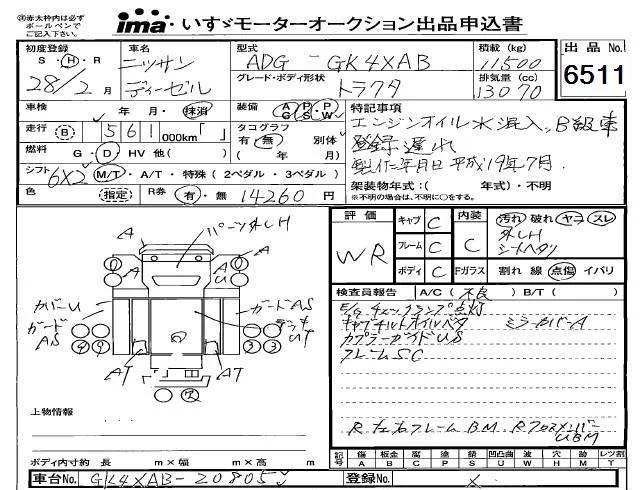 ㊟赤太枠内は必ず
ボールペンで
ご記入下さい。
ima いすゞモーターオークション出品申込書
初度登録 車名 型式 積載 (kg) 出品 No.
S・H・R ニッサン ADG - GK4XAB 11500 6511
28/2月 ディーゼル グレード・ボディ形状 トラクタ 排気量 (cc) 13070
車検 年 月・抹消 装備 A P P G・S・W 特記事項
走行 B 561 000km「 」 タコグラフ 有・無 別体 エンジンオイル水混入、B級車
燃料 G・D HV 他( ) ( 年 月) 登録遅れ
製作年月日 平成19年7月.
シフト 6X2 M/T・A/T・特殊 (2ペダル・3ペダル) 架装物年式:( 年式)・不明
色 指定 R券 有・無 14260円 ※不明の場合は、不明に○をする。
評価 キャブ C 内装 汚れ 破れ ヤコ スレ
WR フレーム C C 外しH
シートヘタリ
ボディ C Fガラス 割れ 線 点傷 イバリ
A パーツ外しH A
A A U
カバーU ガードAS
ガードAS デッキUT
9 9 3 3
AT AT
検査員報告 A/C(不良) B/T( )
E/G チェックランプ点灯
キャブチルトオイルベタ ミラーカバーA
カプラーガイドUS
フレームSC
R 左右フレームBM Rクロスメンバー
UBM
上物情報
ボディ内寸約 長 m×幅 m×高 m
記号 傷 A 板金 B 腐 C 塗 P 錆 S 凹凸曲 U 波 W 穴 H 跡 M レツ割 T
車台No. GK4XAB-20805 登録No. ×